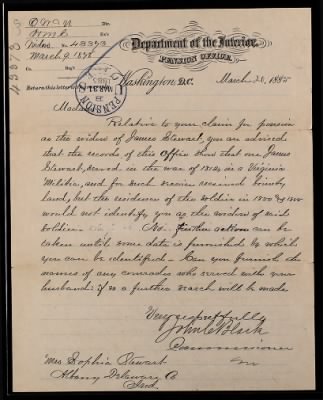 O W & N Div.
Widow 43373
March 9. 1885
Co. Reg't
Return this letter
43373
Department of the Interior,
PENSION OFFICE,
Washington, D.C. March 20, 1885
U.S. PENSION
MAR 31
Madam
Relative to your claim for pension
as the widow of James Stewart, you are advised
that the records of this Office show that one James
Stewart, served in the war of 1812, in a Virginia
Militia, and for such service received bounty
land, but the residence of the soldier in 1850
would not identify you as the widow of said
soldier. No further action can be
taken until some data is furnished by which
you can be identified. Can you furnish the
names of any comrades who served with your
husband: if so a further search will be made
Very respectfully
John C Black
Commissioner
Mrs Sophia Stewart
Albany, Delaware Co
Ind.